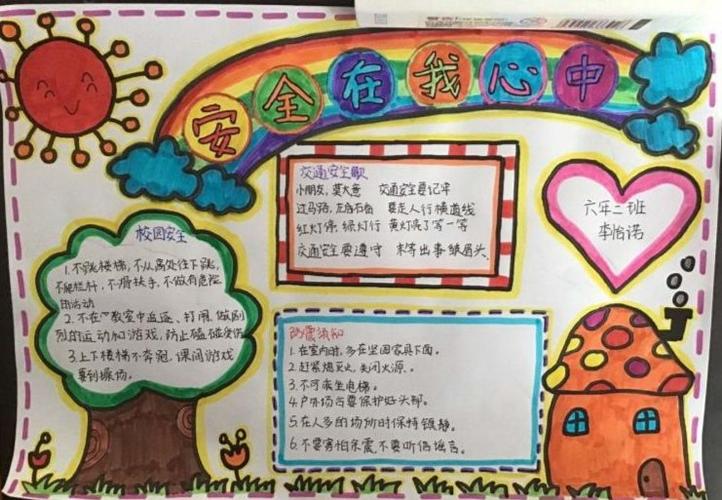 安全在我心中
交通安全歌
小朋友,莫大意 交通安全要记牢
过马路,左右看 要走人行横道线
红灯停 绿灯行 黄灯亮了等一等
交通安全要遵守 末等出事皱眉头.
六年二班
李怡诺
校园安全
1.不跳楼梯,不从高处往下跳,
不爬栏杆,不滑扶手,不做有危险
的活动
2.不在教室中追逐、打闹,做剧
烈的运动和游戏,防止磕碰受伤
3.上下楼梯不奔跑,课间游戏
要到操场。
防震须知
1.在室内时,多在坚固家具下面。
2.赶紧熄灭火,关闭火源。
3.不可乘坐电梯。
4.户外场合要保护好头部。
5.在人多的场所时保持镇静。
6.不要害怕余震,不要听信谣言。